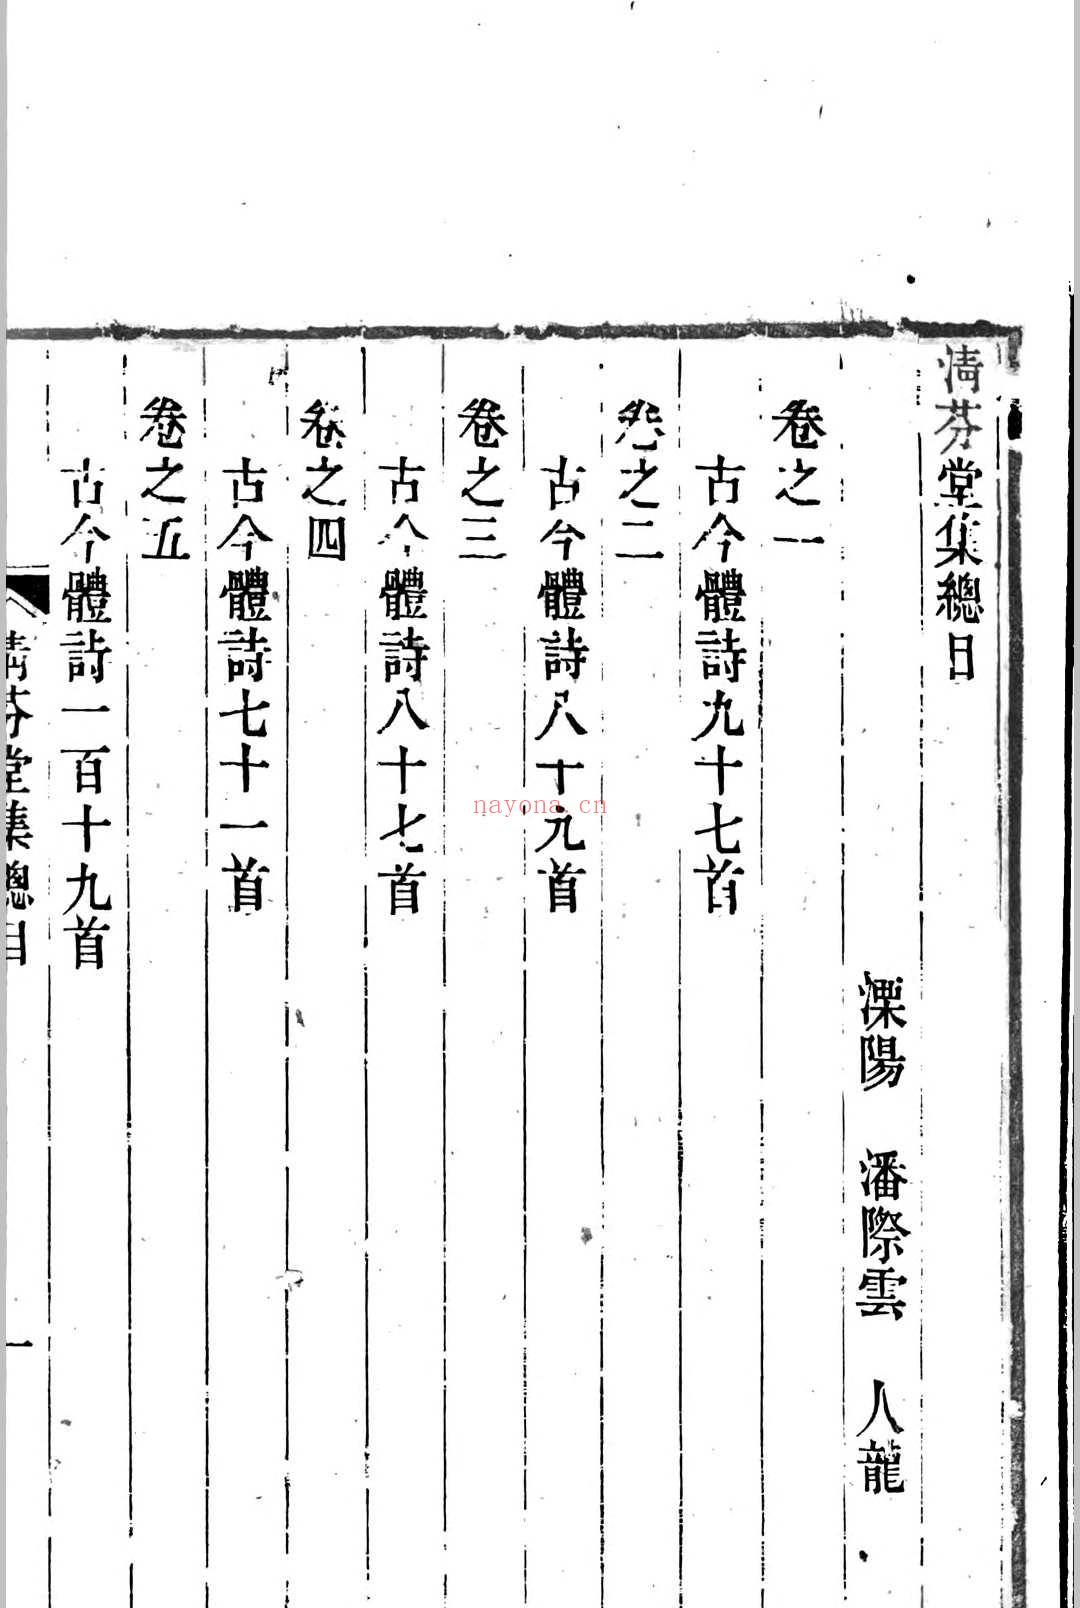 清芬堂集總目
溧陽　潘際雲　人龍
卷之一
古今體詩九十七首
卷之二
古今體詩八十九首
卷之三
古今體詩八十七首
卷之四
古今體詩七十一首
卷之五
古今體詩一百十九首
清芬堂集總目
一
nayona.cn